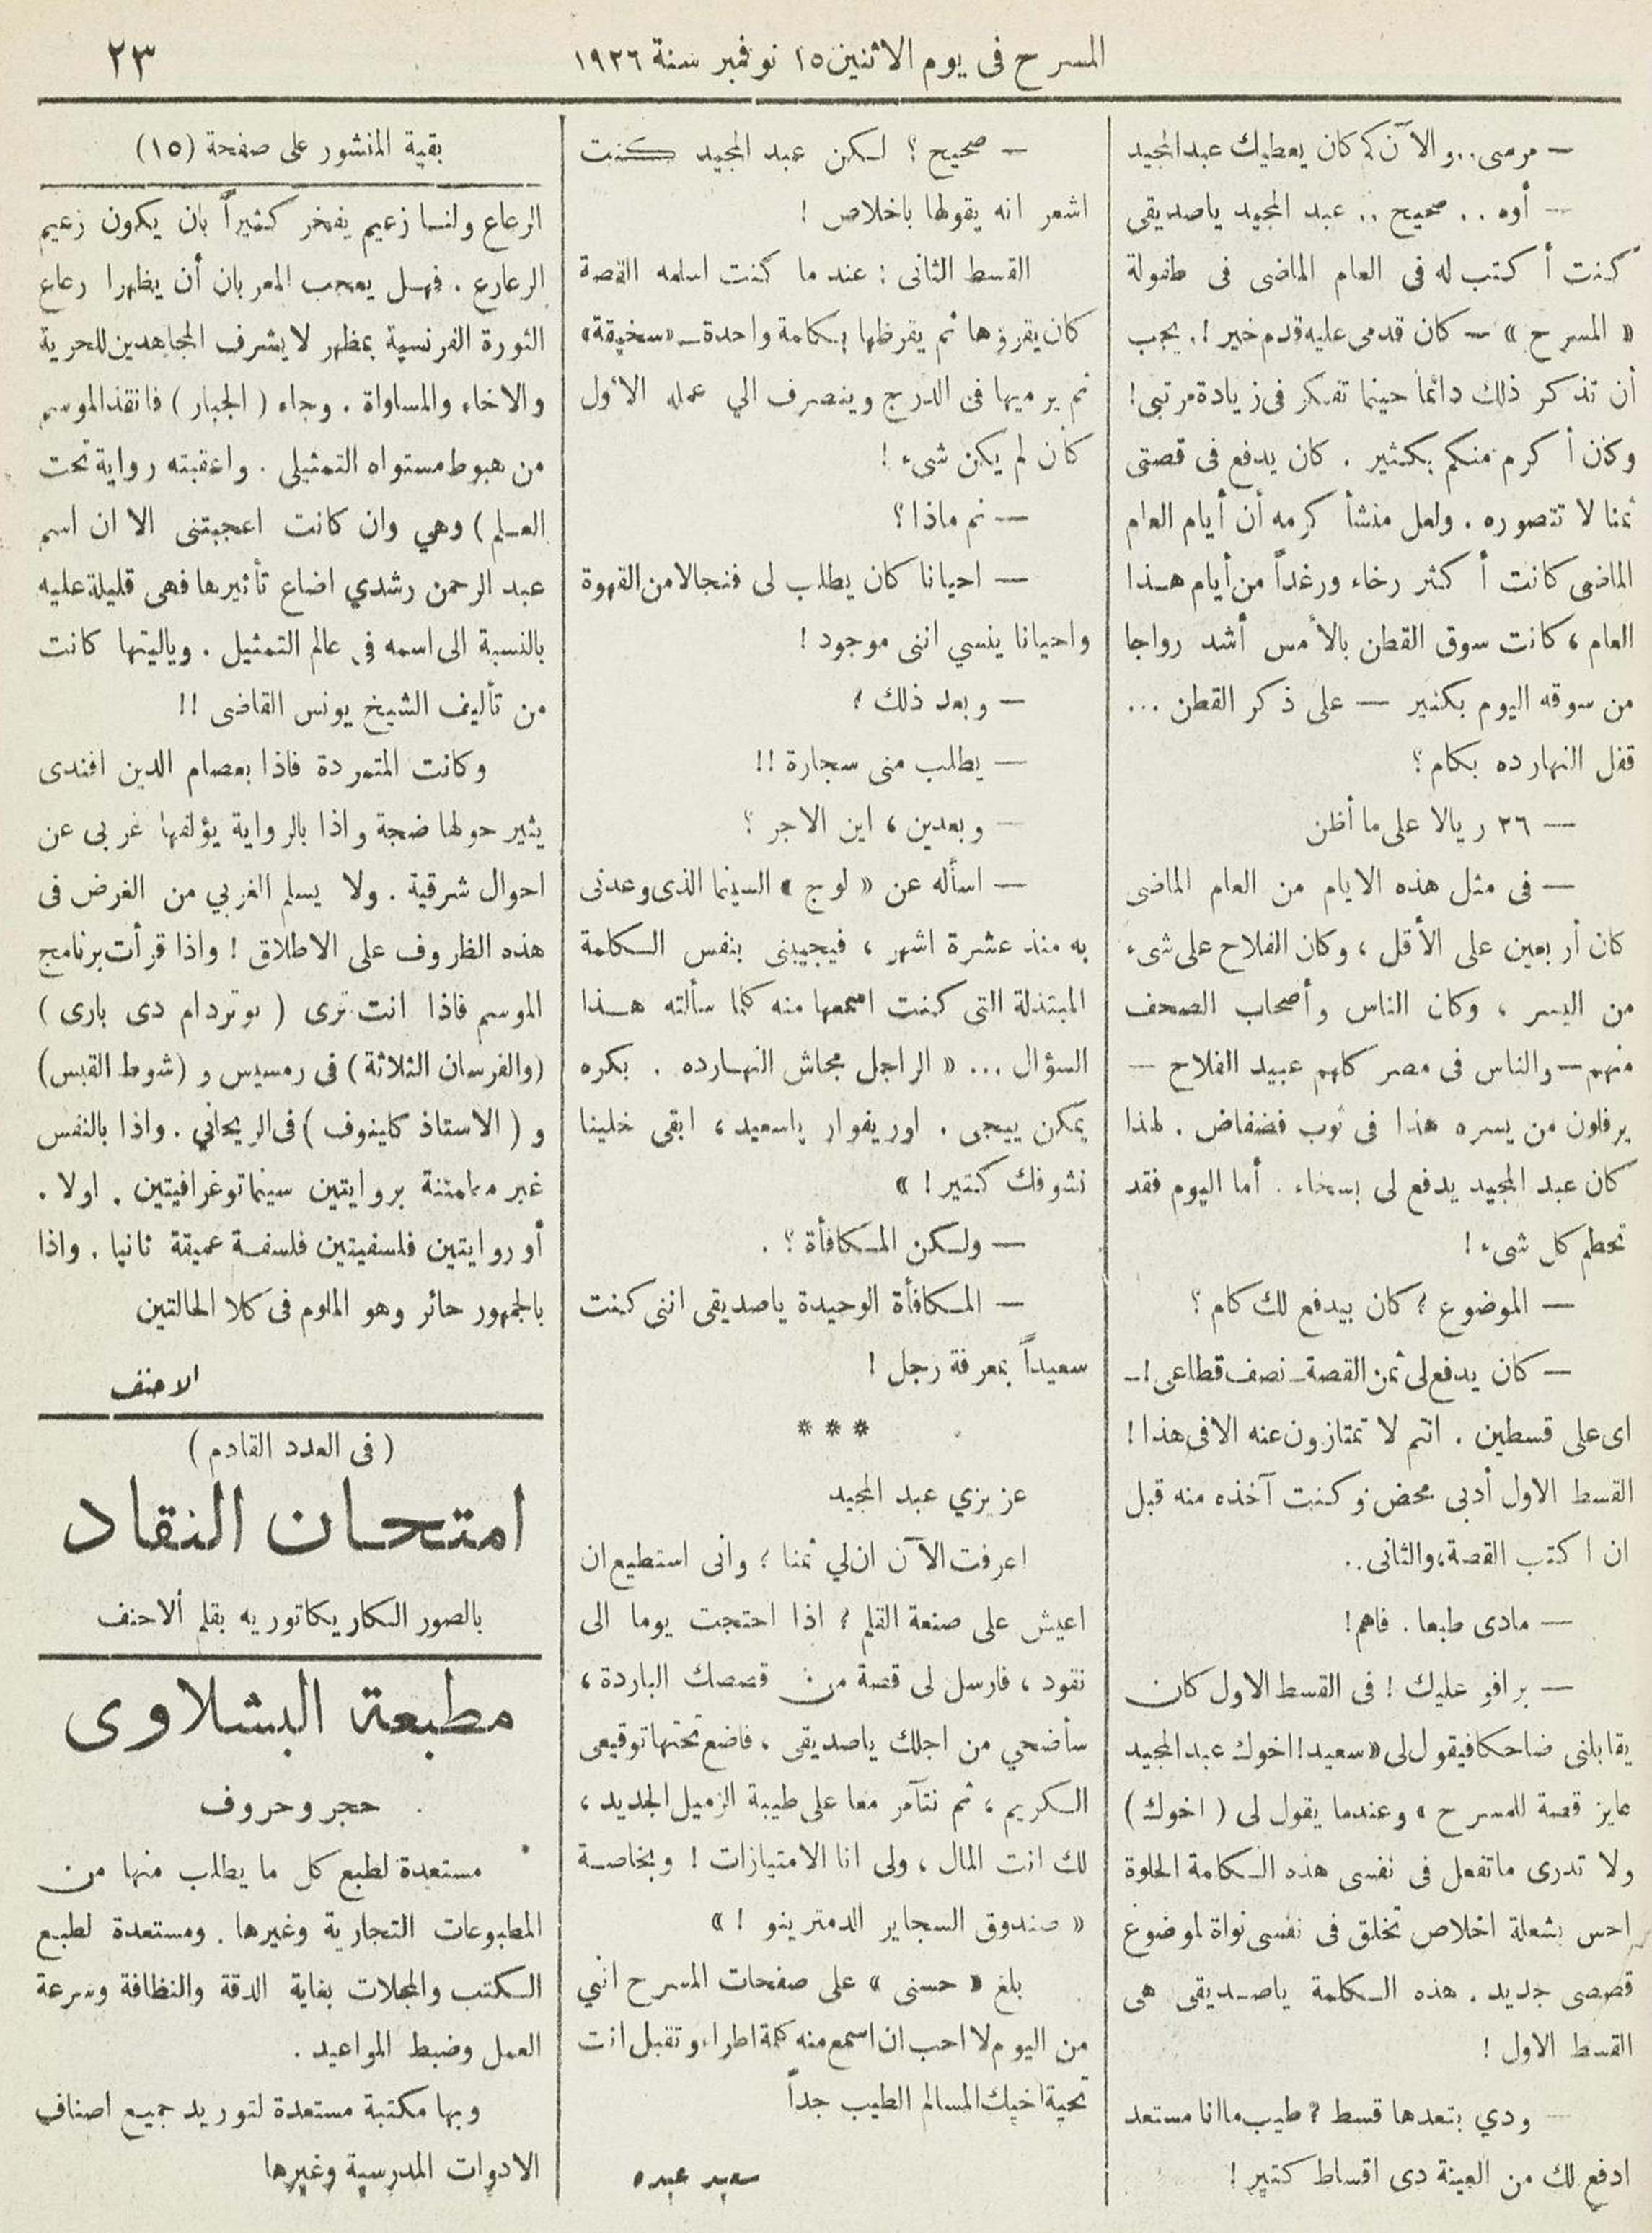 المسرح فى يوم الاثنين ١٥ نوفمبر سنة ١٩٢٦
٢٣
— مرسى.. والآن كم كان يعطيك عبد المجيد
— أوه .. صحيح .. عبد المجيد ياصديقى
كنت أكتب له فى العام الماضى فى طفولة
« المسرح » — كان قدمى عليه قدم خير !. يجب
أن تذكر ذلك دائماً حينما تفكر فى زيادة مرتبى !
وكان أكرم منكم بكثير . كان يدفع فى قصتى
ثمنا لا تتصوره . ولعل منشأ كرمه أن أيام العام
الماضى كانت أكثر رخاء ورغداً من أيام هذا
العام ، كانت سوق القطن بالأمس أشد رواجا
من سوقه اليوم بكثير — على ذكر القطن ...
قفل النهارده بكام ؟
— ٢٦ ريالا على ما أظن
— فى مثل هذه الايام من العام الماضى
كان أربعين على الأقل ، وكان الفلاح على شىء
من اليسر ، وكان الناس وأصحاب الصحف
منهم — والناس فى مصر كلهم عبيد الفلاح —
يرفلون من يسره هذا فى ثوب فضفاض . لهذا
كان عبد المجيد يدفع لى بسخاء . أما اليوم فقد
تحطم كل شىء !
— الموضوع ؟ كان بيدفع لك كام ؟
— كان يدفع لى ثمن القصة — نصف قطاعى ! —
اى على قسطين . انتم لا تمتازون عنه الا فى هذا !
القسط الاول أدبى محض وكنت آخذه منه قبل
ان اكتب القصة، والثانى ..
— مادى طبعا . فاهم !
— برافو عليك ! فى القسط الاول كان
يقابلنى ضاحكا فيقول لى « سعيد ! اخوك عبد المجيد
عايز قصة للمسرح » وعندما يقول لى ( اخوك )
ولا تدرى ماتفعل فى نفسى هذه الكلمة الحلوة
احس بشعلة اخلاص تخلق فى نفسى نواة لموضوع
قصصى جديد . هذه الكلمة ياصديقى هى
القسط الاول !
— ودي بتعدها قسط ؟ طيب ما انا مستعد
ادفع لك من العينة دى اقساط كتير !
— صحيح ؟ لكن عبد المجيد كنت
اشعر انه يقولها باخلاص !
القسط الثانى : عند ما كنت اسلمه القصة
كان يقرؤها ثم يقرظها بكلمة واحدة — «سخيفة»
ثم يرميها فى الدرج وينصرف الي عمله الأول
كأن لم يكن شىء !
— ثم ماذا ؟
— احيانا كان يطلب لى فنجالا من القهوة
واحيانا ينسي اننى موجود !
— وبعد ذلك ؟
— يطلب منى سجارة !!
— وبعدين ، اين الاجر ؟
— اسأله عن « لوج » السينما الذى وعدنى
به منذ عشرة اشهر ، فيجيبنى بنفس الكلمة
المبتذلة التى كنت اسمعها منه كلما سألته هذا
السؤال ... « الراجل مجاش النهارده . بكره
يمكن ييجى . اوريفوار ياسعيد ، ابقى خلينا
نشوفك كتير ! »
— ولكن المكافأة ؟ .
— المكافأة الوحيدة ياصديقى اننى كنت
سعيداً بمعرفة رجل !
***
عزيزي عبد المجيد
اعرفت الآن ان لي ثمنا ؟ وانى استطيع ان
اعيش على صنعة القلم ؟ اذا احتجت يوما الى
نقود ، فارسل لى قصة من قصصك الباردة ،
سأضحي من اجلك ياصديقى ، فاضع تحتها توقيعى
الكريم ، ثم نتآمر معا على طيبة الزميل الجديد ،
لك انت المال ، ولى انا الامتيازات ! وبخاصة
« صندوق السجاير الدمترينو ! »
بلغ « حسنى » على صفحات المسرح انني
من اليوم لا احب ان اسمع منه كلمة اطراء، وتقبل انت
تحية اخيك المسالم الطيب جداً
سعيد عبده
بقية المنشور على صفحة (١٥)
الرعاع ولنا زعيم يفخر كثيراً بان يكون زعيم
الرعارع . فهل يعجب المعربان أن يظهرا رعاع
الثورة الفرنسية بمظهر لايشرف المجاهدين للحرية
والاخاء والمساواة . وجاء ( الجبار ) فانقذ الموسم
من هبوط مستواه التمثيلى . واعقبته رواية تحت
العلم ) وهي وان كانت اعجبتنى الا ان اسم
عبد الرحمن رشدي اضاع تأثيرها فهى قليلة عليه
بالنسبة الى اسمه في عالم التمثيل . وياليتها كانت
من تأليف الشيخ يونس القاضى !!
وكانت المتمردة فاذا بعصام الدين افندى
يثير حولها ضجة واذا بالرواية يؤلفها غربى عن
احوال شرقية . ولا يسلم الغربي من الغرض فى
هذه الظروف على الاطلاق ! واذا قرأت برنامج
الموسم فاذا انت ترى ( نوتردام دى بارى )
(والفرسان الثلاثة) فى رمسيس و (شوط القبس)
و ( الاستاذ كلينوف ) فى الريحاني . واذا بالنفس
غير مطمئنة بروايتين سينماتوغرافيتين . اولا .
أو روايتين فلسفيتين فلسفة عميقة ثانيا . واذا
بالجمهور حائر وهو الملوم فى كلا الحالتين
الاحنف
( فى العدد القادم )
امتحان النقاد
بالصور الكاريكاتوريه بقلم ألاحنف
مطبعة البشلاوى
حجر وحروف
مستعدة لطبع كل ما يطلب منها من
المطبوعات التجارية وغيرها . ومستعدة لطبع
الكتب والمجلات بغاية الدقة والنظافة وسرعة
العمل وضبط المواعيد .
وبها مكتبة مستعدة لتوريد جميع اصناف
الادوات المدرسية وغيرها